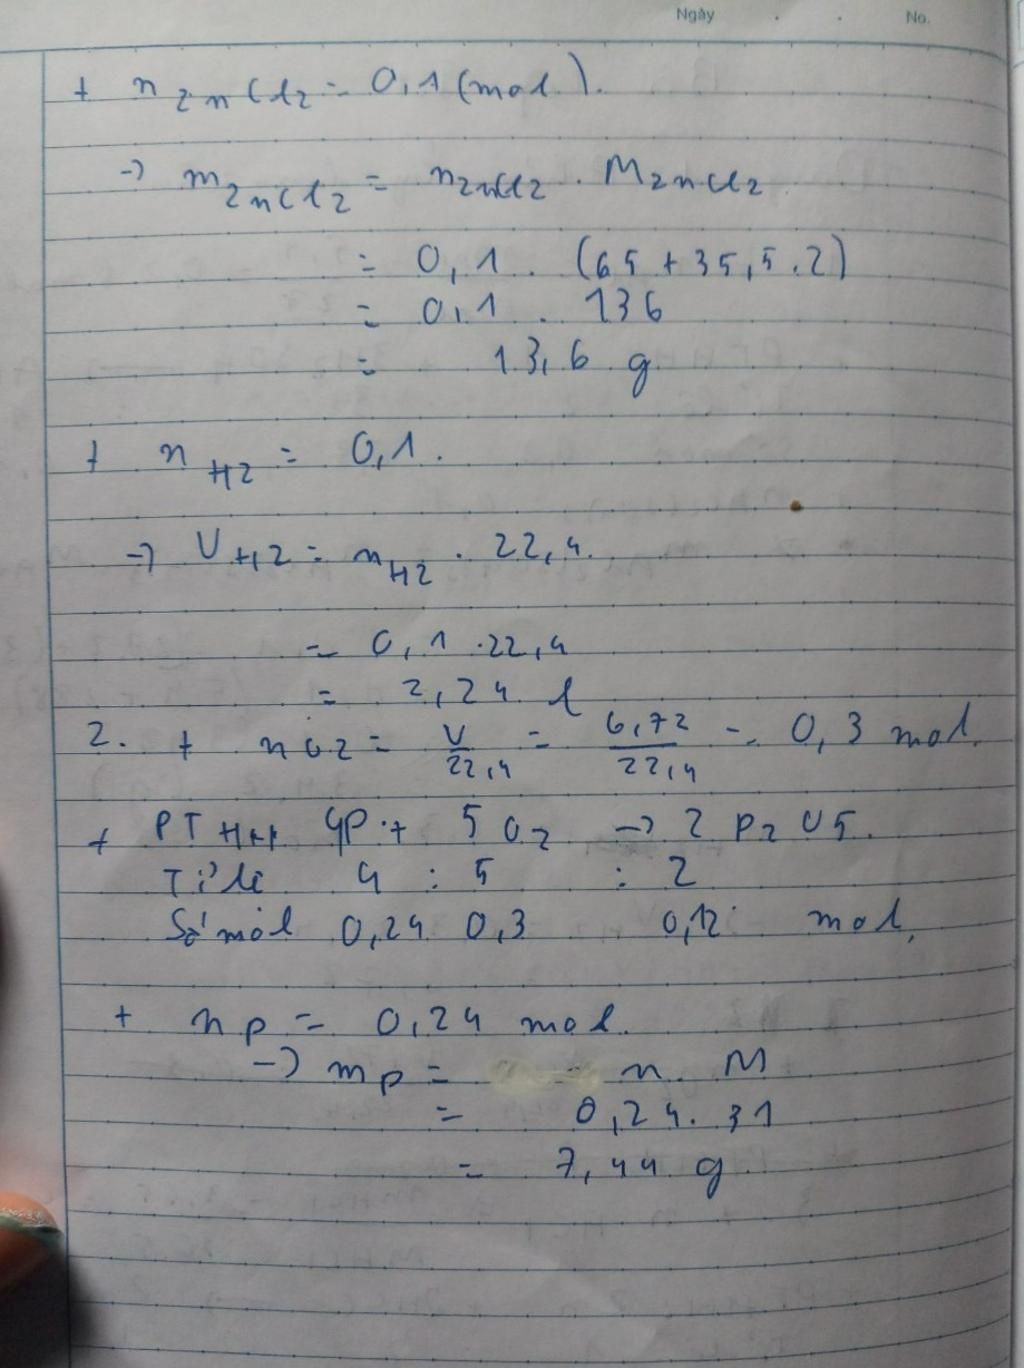 Ngày . . No.
+ nZnCl2 = 0,1 (mol).
→ mZnCl2 = nZnCl2 . MZnCl2
= 0,1 . (65 + 35,5 . 2)
= 0,1 . 136
= 13,6 g
+ nH2 = 0,1.
→ VH2 = nH2 . 22,4.
= 0,1 . 22,4
= 2,24 l
2. + nO2 = V/22,4 = 6,72/22,4 = 0,3 mol.
+ PTHH 4P + 5O2 → 2P2O5.
Tỉ lệ 4 : 5 : 2
Số mol 0,24 0,3 0,12 mol.
+ nP = 0,24 mol.
→ mP = n. M
= 0,24. 31
= 7,44 g